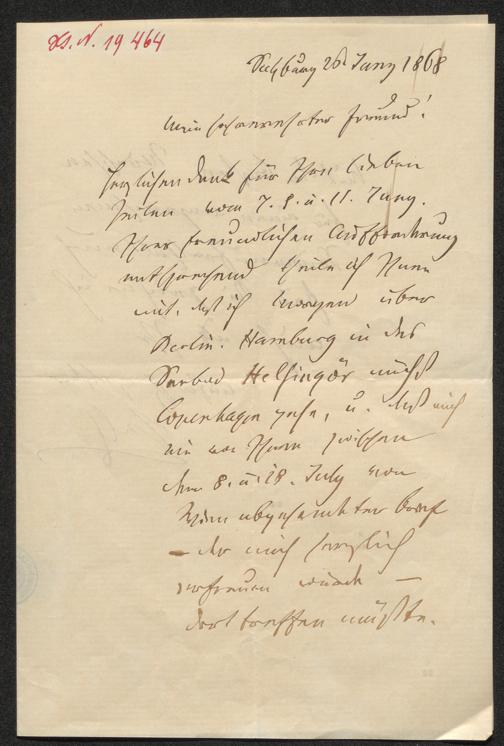 H.I.N. 19464
Salzburg 26 Juny 1868
Mein verehrtester Freund!
Herzlichen Dank für Ihre lieben
Zeilen vom 7. 8. u. 11. Juny.
Ihrer freundlichen Aufforderung
entsprechend theile ich Ihnen
mit, daß ich morgen über
Berlin, Hamburg in das
Seebad Helsingör nächst
Copenhagen gehe, u. daß mich
ein von Ihnen zwischen
dem 8. u. 18. July von
Wien abgesandter Brief
– der mich herzlich
erfreuen würde –
dort treffen müßte.